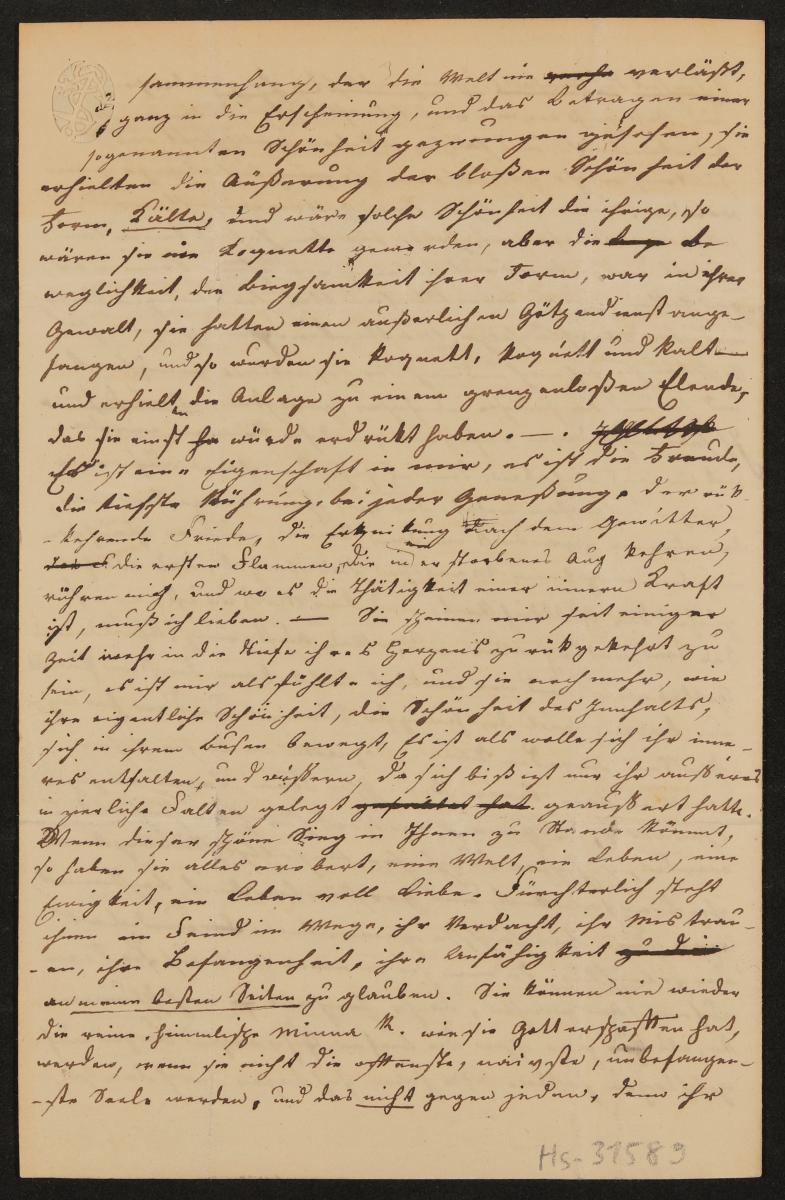 sammenhang, der die Welt nie verläßt,
ganz in die Erscheinung, und das Betragen einer
sogenannten Schönheit gezwungen gesehen, sie
erhielten die Äußerung der bloßen Schönheit der
Form, Kälte, und wäre solche Schönheit die ihrige, so
wären sie nie Koquette geworden, aber die be
weglichkeit, der Biegsamkeit ihrer Form, war in ihrer
Gewalt, sie hatten einen äußerlichen Götzendienst ange-
fangen, und so wurden sie koquett, koquett und kalt
und erhielten die Anlage zu einem grenzenloßen Elende,
das sie einst würde erdrükt haben. — .
Es ist eine Eigenschaft in mir, es ist die Freude,
die tiefste Rührung, bei jeder Geneßung, der rük-
-kehrende Friede, die Erquikung nach dem Gewitter,
die ersten Flammen, die in ein erstorbenes Aug kehren,
rühren mich, und wo es die Thätigkeit einer innern Kraft
ist, muß ich lieben. — Sie scheinen mir seit einiger
Zeit mehr in die Tiefe ihres Herzens zurükgekehrt zu
sein, es ist mir als fühlte ich, und sie noch mehr, wie
ihre eigentliche Schönheit, die Schönheit des Innhalts,
sich in ihrem Busen bewegt, Es ist als wolle sich ihr inne-
res entfalten, und äußern, da sich biß izt nur ihr äußeres
in zierliche Falten gelegt gefaltet hat. geäußert hatte.
Wenn dieser schöne Sieg in Ihnen zu Stande kömmt,
so haben sie alles erobert, eine Welt, ein Leben, eine
Ewigkeit, ein Leben voll Liebe. Fürchterlich steht
ihnen ein Feind im Wege, ihr Verdacht, ihr Mistrau-
-en, ihre Befangenheit, ihre Unfähigkeit
an meine besten Seiten zu glauben. Sie können nie wieder
die reine himmlische Minna R. wie sie Gott erschaffen hat,
werden, wenn sie nicht die offenste, naivste, unbefangen-
-ste Seele werden, und das nicht gegen jeden, denn ihr
Hs-31589